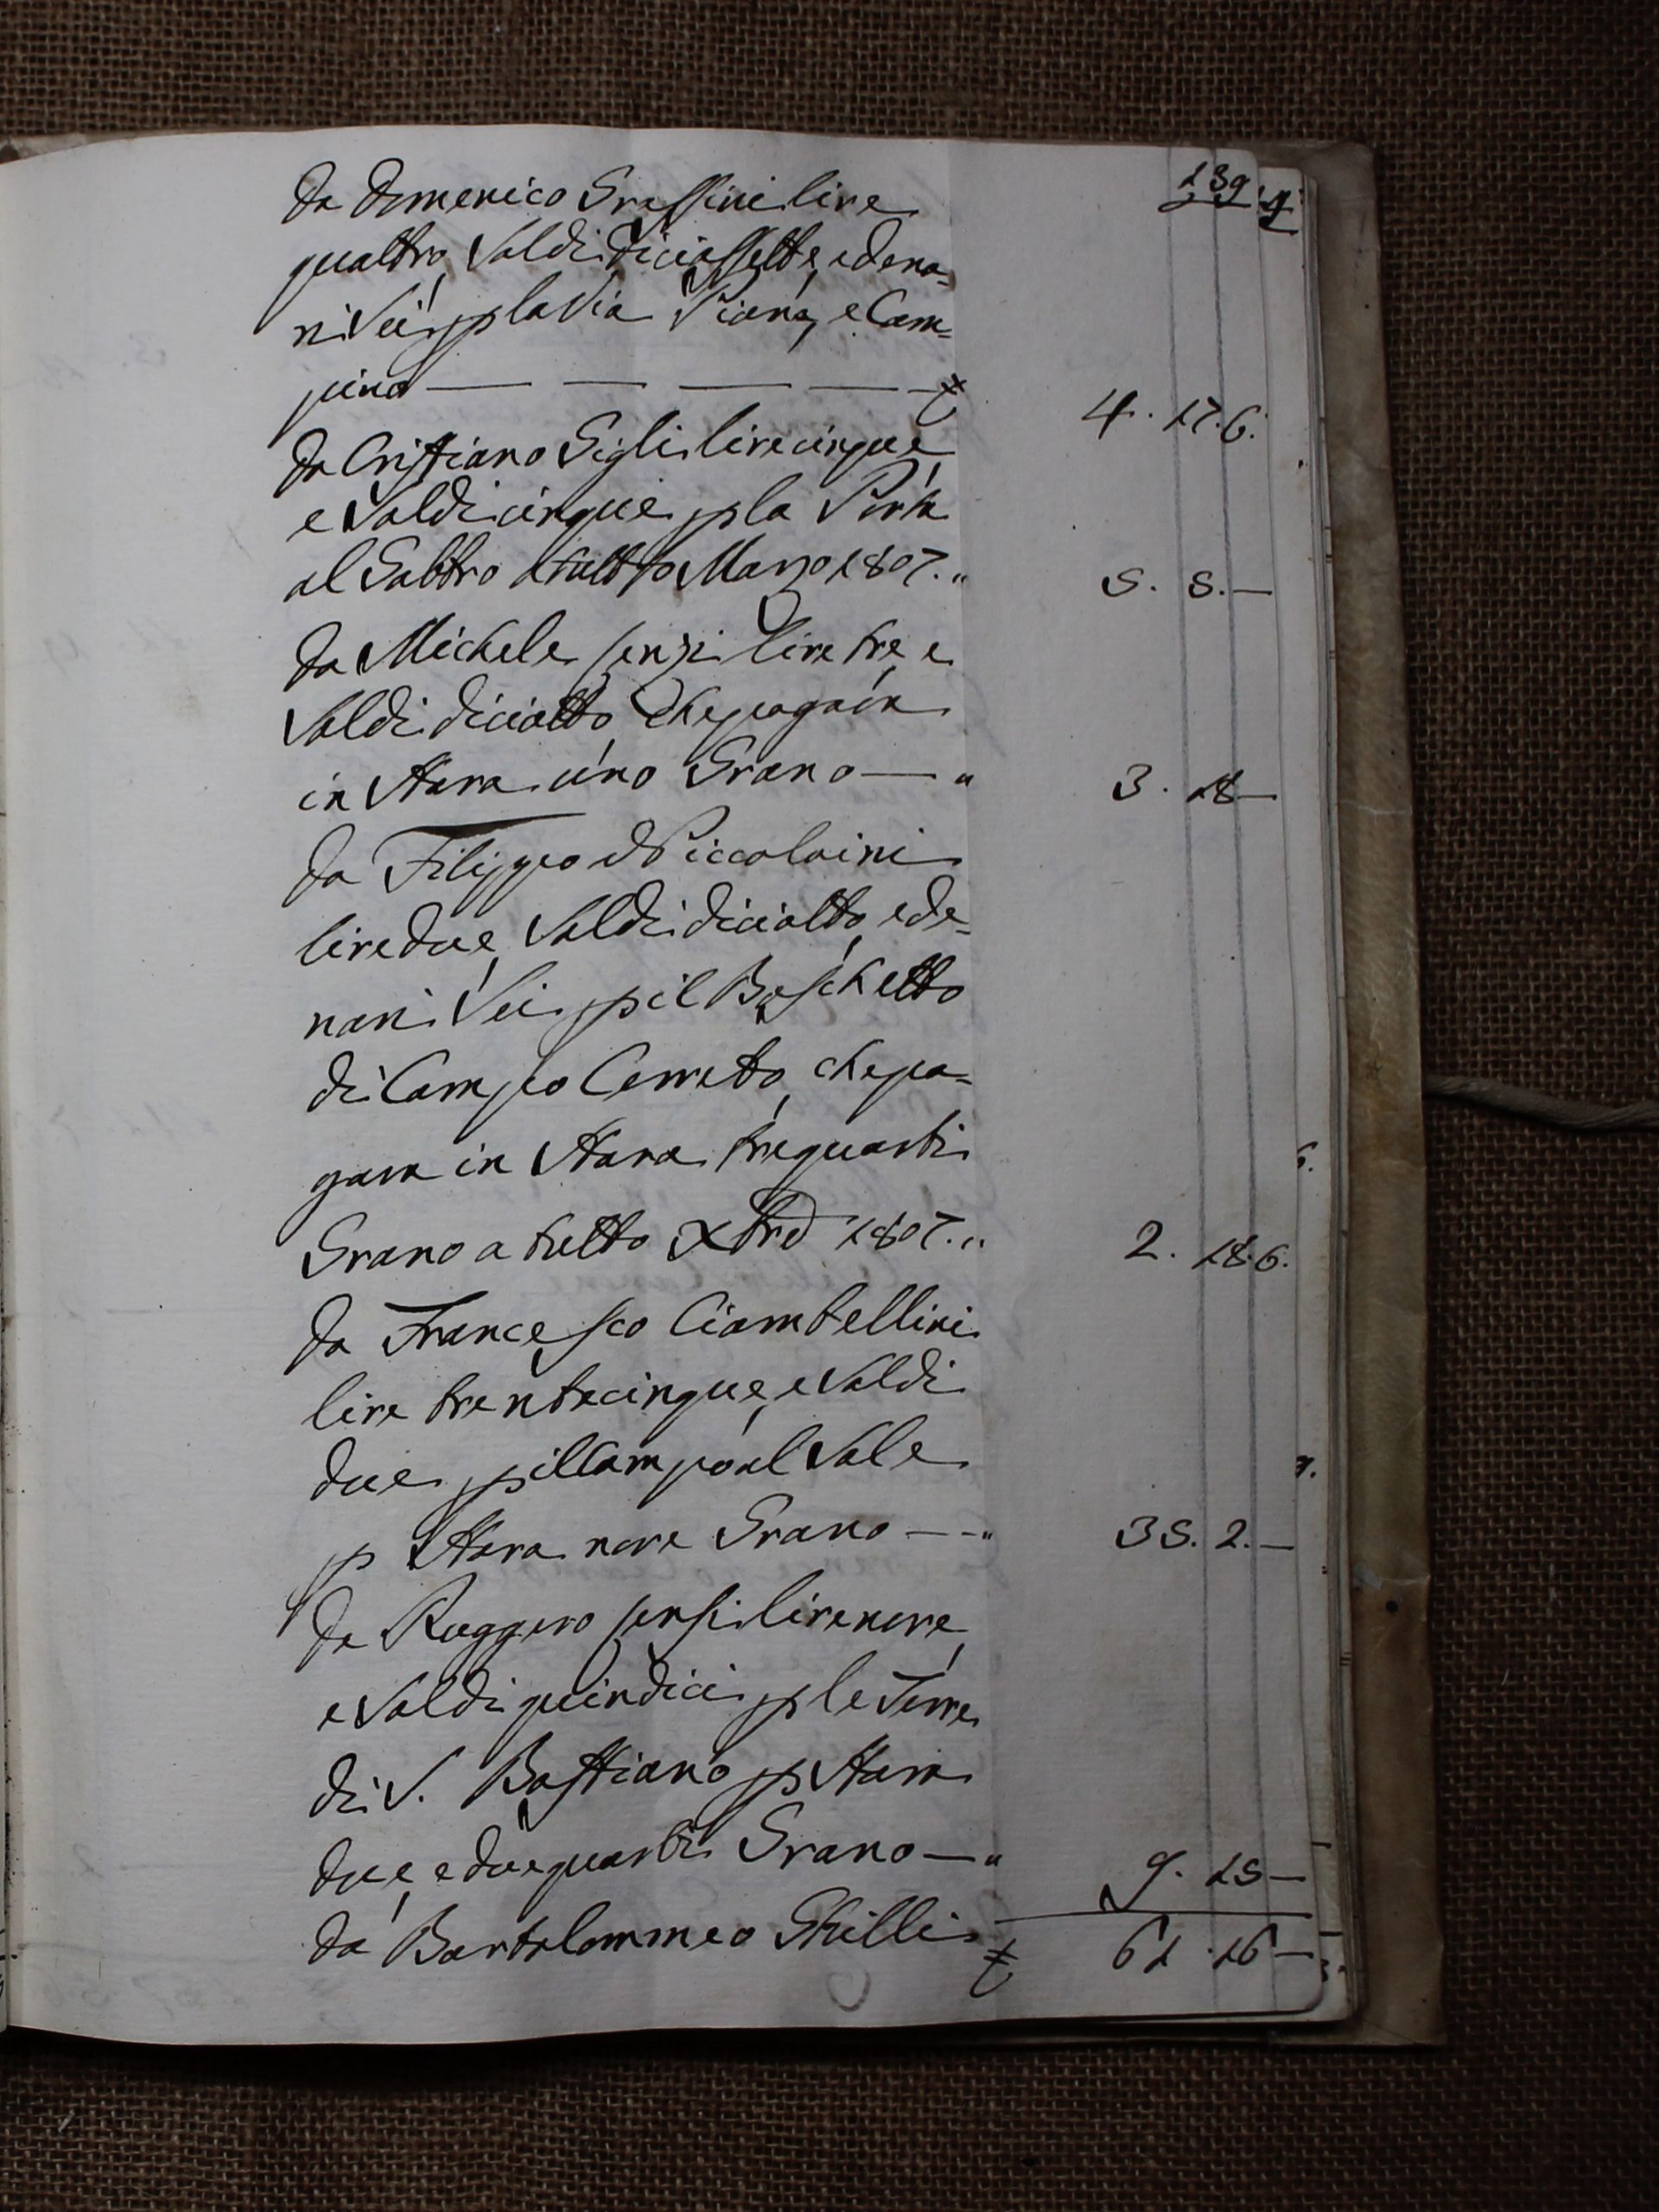 139
da Domenico Grassini lire
quattro, soldi diciassette, e dena=
ri sei p la Via Piana, e Cam=
pino — — — — £ 4. 17. 6.
da Cristiano Sigli lire cinque,
e soldi cinque p la Porta
al Gattro a tutto Marzo 1807. " 5. 5. —
da Michele Senzi lire tre, e
soldi diciotto, che paga in
in Stara uno Grano — " 3. 18 —
da Filippo Piccolaini
lire due, soldi diciotto, e de=
nari sei p il Boschetto
di Campo Cerreto, che pa=
gava in Stara tre quarti
Grano a tutto Xbre 1807. " 2. 18. 6.
da Francesco Ciambellini
lire trentacinque, e soldi
due p il Campo al Sale
p Stara nove Grano — " 35. 2. —
da Ruggero Sensi lire nove,
e soldi quindici p le Terre
di S. Bastiano p Stara
due, e due quarti Grano — " 9. 15 —
da Bartolommeo Ghilli £ 61. 16 —